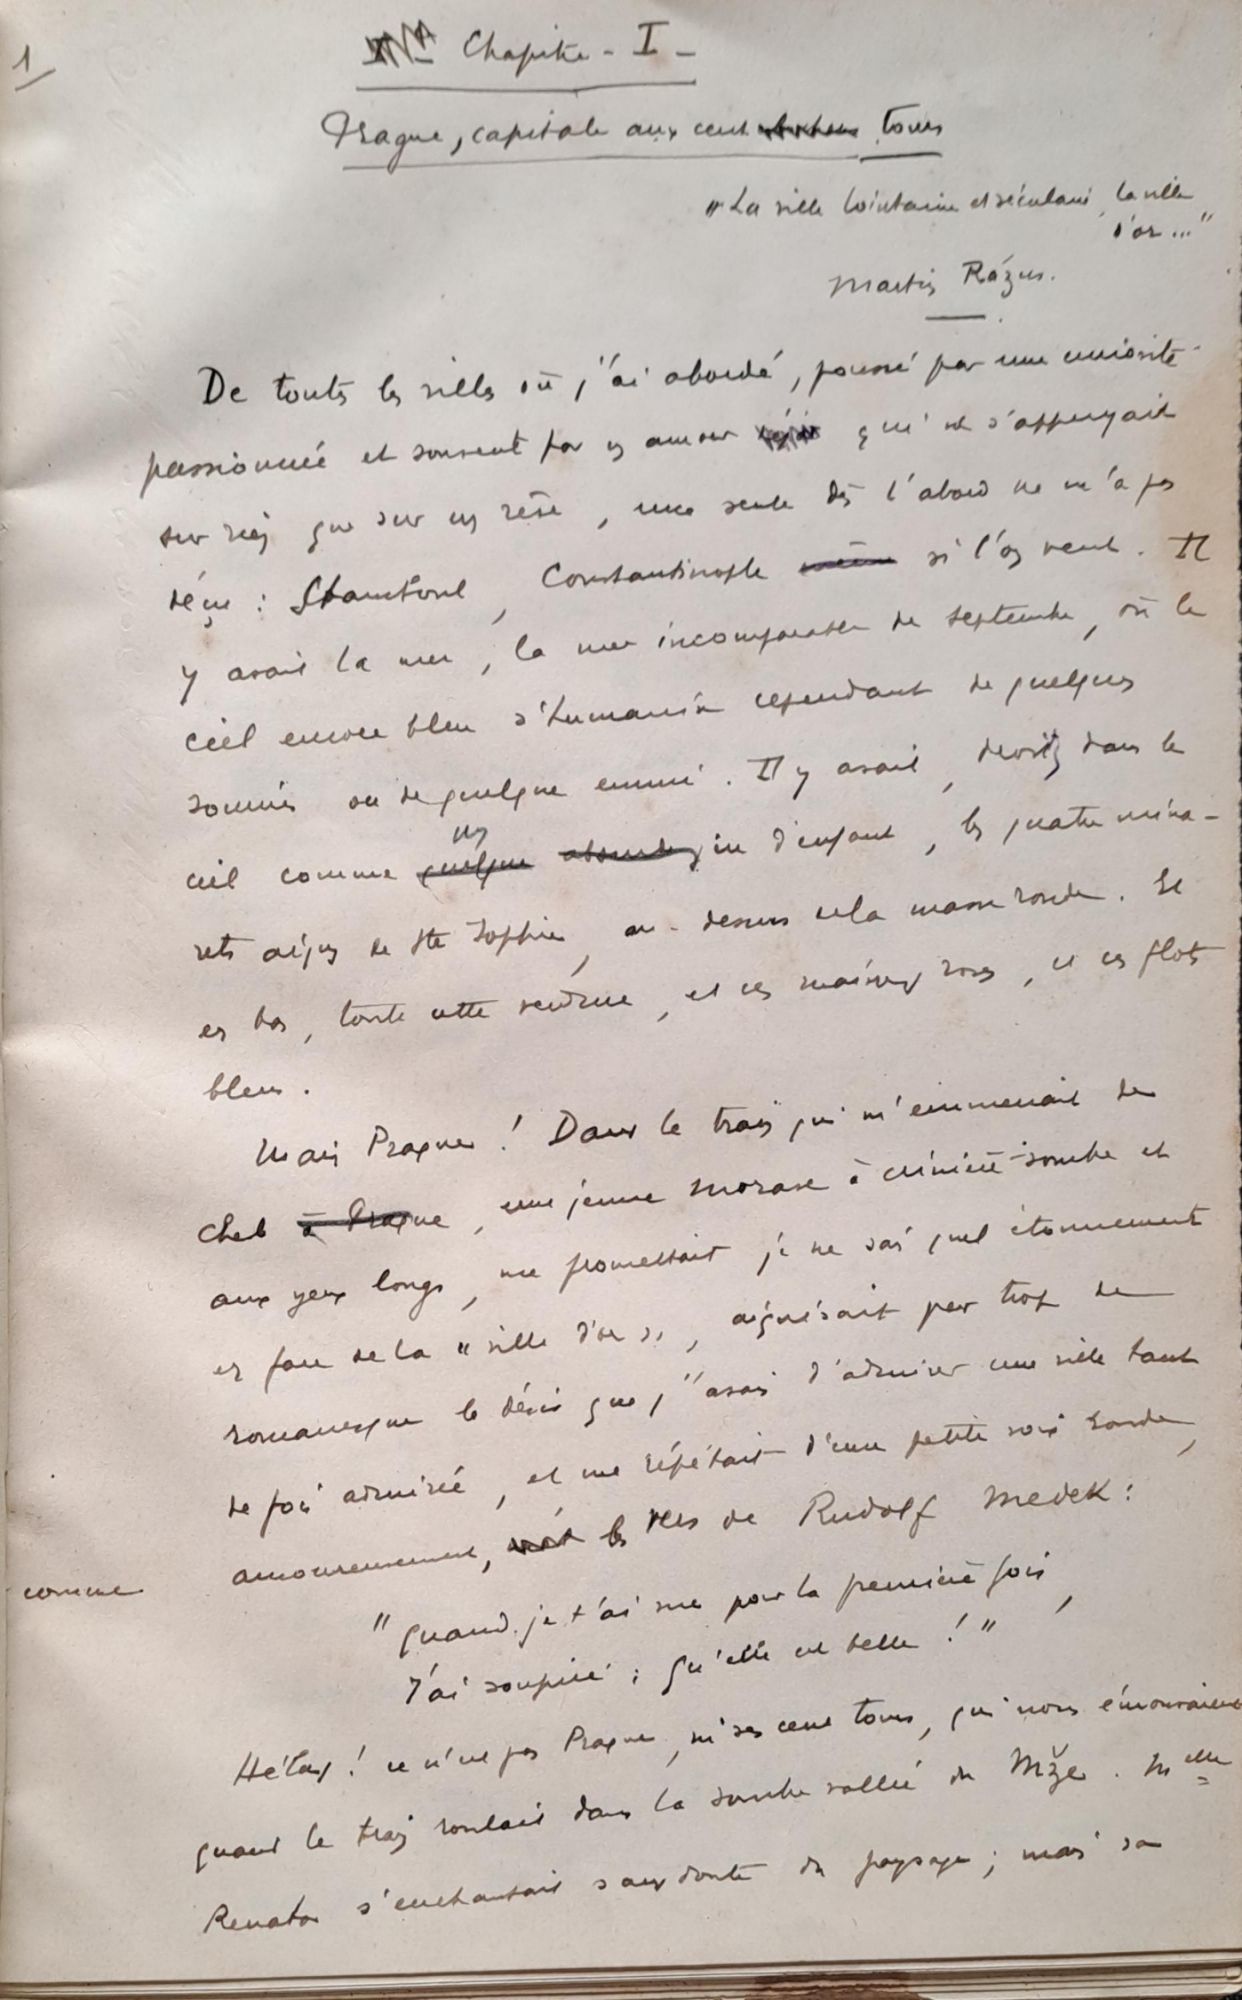 1
Chapitre - I -
Prague, capitale aux cent tours
"La ville lointaine et séculaire, la ville
d'or..."
Martin Rázus.
De toutes les villes où j'ai abordé, poussé par une curiosité
passionnée et souvent par un amour qui ne s'appuyait
sur rien que sur un rêve, une seule dès l'abord ne m'a pas
déçu : Stamboul, Constantinople si l'on veut. Il
y avait la mer, la mer incomparable de septembre, où le
ciel encore bleu s'humanise cependant de quelques
soucis ou de quelque ennui. Il y avait, droits dans le
ciel comme un jeu d'enfant, les quatre mina-
rets aigus de Ste Sophie, au-dessus de la masse ronde. Et
en bas, toute cette verdure, et ces maisons roses, et ces flots
bleus.
Mais Prague ! Dans le train qui m'emmenait de
Cheb, une jeune Morave à crinière sombre et
aux yeux longs, me promettait je ne sais quel étonnement
en face de la "ville d'or", aiguisait par trop de
romanesque le désir que j'avais d'admirer une ville tant
de fois admirée, et me répétait d'une petite voix sourde,
amoureusement, les vers de Rudolf Medek :
comme
"Quand je t'ai vue pour la première fois,
J'ai soupiré : qu'elle est belle !"
Hélas ! ce n'est pas Prague, ni ses cent tours, qui nous émouvaient
quand le train roulait dans la sombre vallée du Mže. Melle
Renata s'enchantait sans doute du paysage ; mais sa